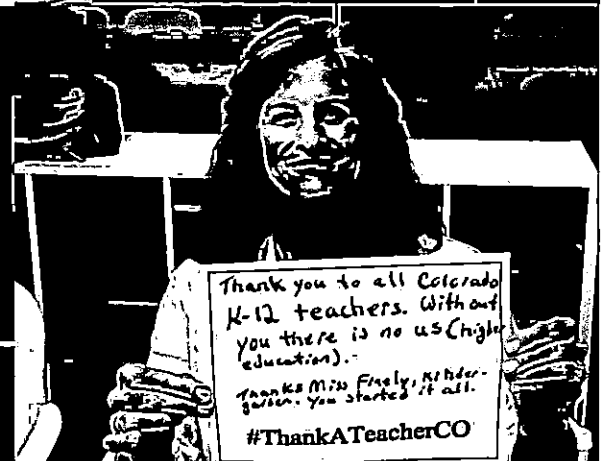 Thank you to all Colorado
K-12 teachers. Without
you there is no us (higher
education).
Thanks Miss Finely, Kinder-
garten. You started it all.
#ThankATeacherCO